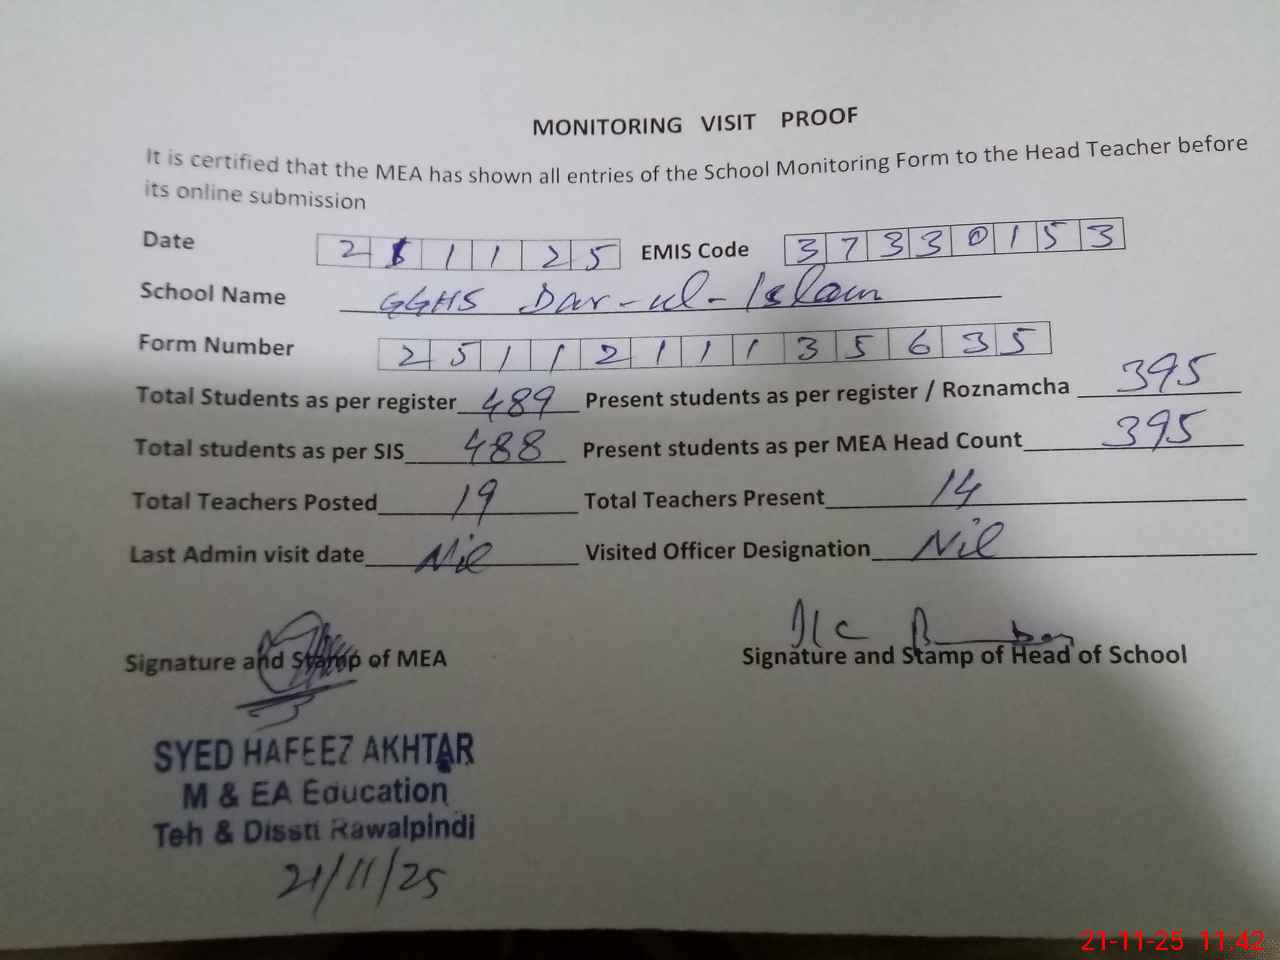 MONITORING VISIT PROOF
It is certified that the MEA has shown all entries of the School Monitoring Form to the Head Teacher before
its online submission
Date 2 1 1 1 2 5 EMIS Code 3 7 3 3 0 1 5 3
School Name GGHS Dar-ul-Islam
Form Number 2 5 1 1 2 1 1 1 3 5 6 3 5
Total Students as per register 489 Present students as per register / Roznamcha 395
Total students as per SIS 488 Present students as per MEA Head Count 395
Total Teachers Posted 19 Total Teachers Present 14
Last Admin visit date Nil Visited Officer Designation Nil
Signature and Stamp of MEA Signature and Stamp of Head of School
SYED HAFEEZ AKHTAR
M & EA Education
Teh & Disstt Rawalpindi
21/11/25
21-11-25 11:42